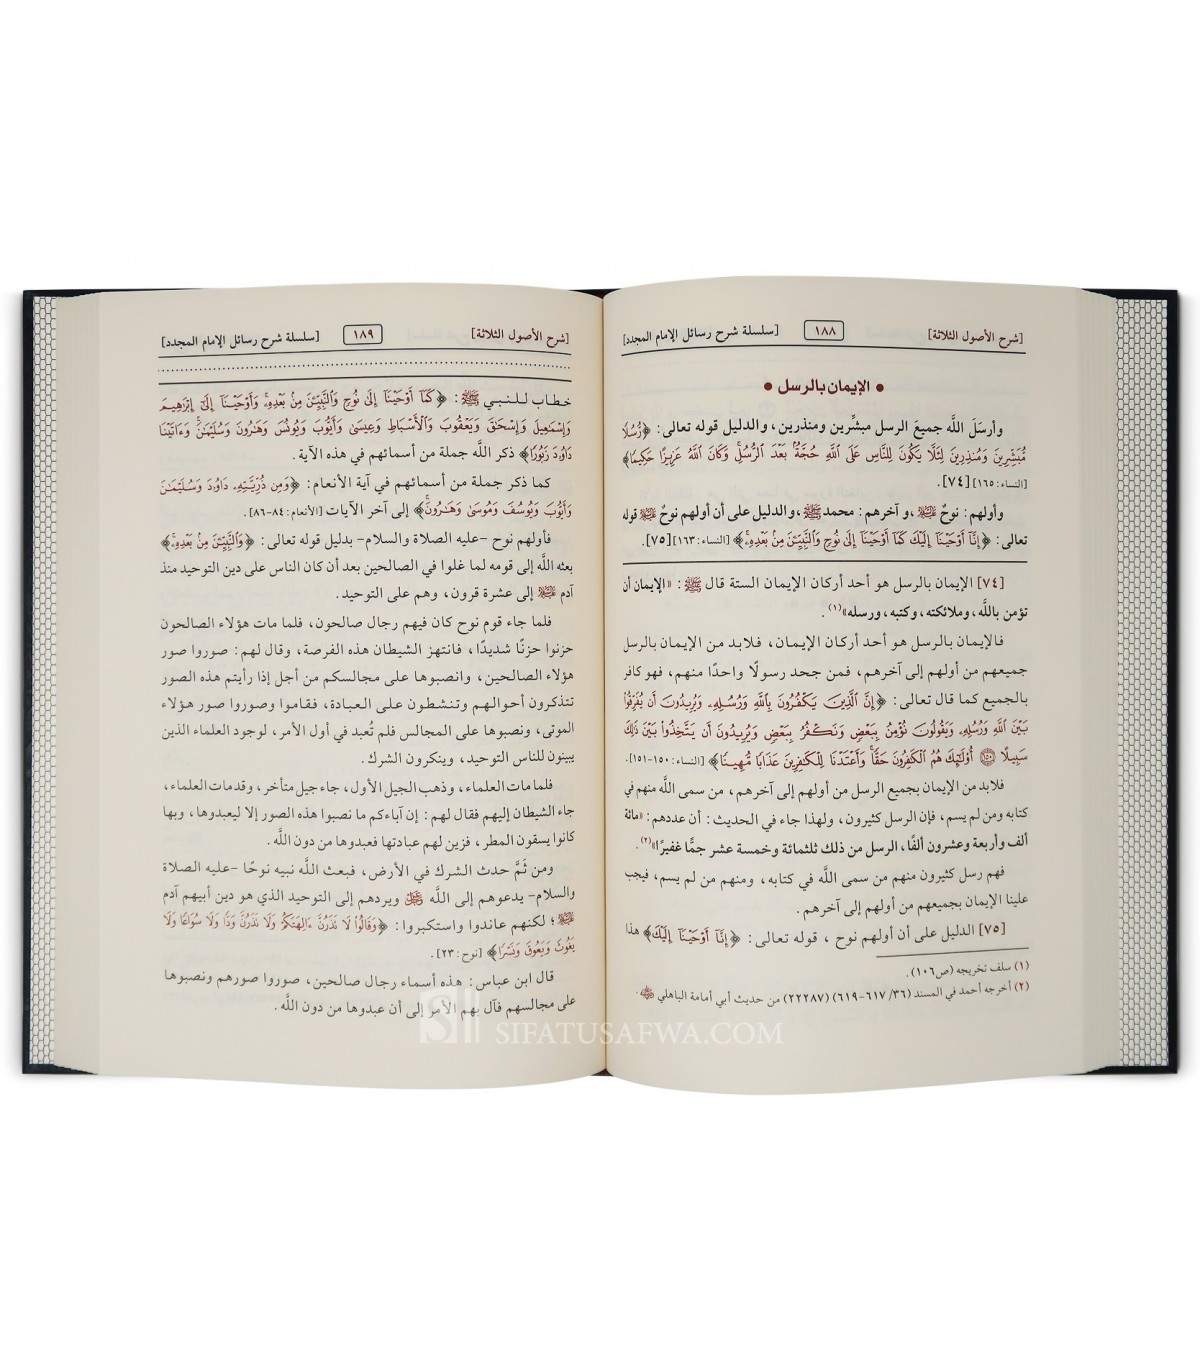 [شرح الأصول الثلاثة] ١٨٨ [سلسلة شرح رسائل الإمام المجدد]
• الإيمان بالرسل •
وأرسَل اللَّه جميعَ الرسل مبشِّرين ومنذرين، والدليل قوله تعالى: ﴿رُّسُلًا
مُّبَشِّرِينَ وَمُنذِرِينَ لِئَلَّا يَكُونَ لِلنَّاسِ عَلَى ٱللَّهِ حُجَّةٌۢ بَعْدَ ٱلرُّسُلِۚ وَكَانَ ٱللَّهُ عَزِيزًا حَكِيمًا﴾
[النساء: ١٦٥] [٧٤].
وأولهم: نوحٌ ﷺ، وآخرهم: محمد ﷺ، والدليل على أن أولهم نوحٌ ﷺ قوله
تعالى: ﴿إِنَّآ أَوْحَيْنَآ إِلَيْكَ كَمَآ أَوْحَيْنَآ إِلَىٰ نُوحٍ وَٱلنَّبِيِّـۧنَ مِنۢ بَعْدِهِۦ﴾ [النساء: ١٦٣] [٧٥].
[٧٤] الإيمان بالرسل هو أحد أركان الإيمان الستة قال ﷺ: «الإيمان أن
تؤمن باللَّه، وملائكته، وكتبه، ورسله»(١).
فالإيمان بالرسل هو أحد أركان الإيمان، فلابد من الإيمان بالرسل
جميعهم من أولهم إلى آخرهم، فمن جحد رسولًا واحدًا منهم، فهو كافر
بالجميع كما قال تعالى: ﴿إِنَّ ٱلَّذِينَ يَكْفُرُونَ بِٱللَّهِ وَرُسُلِهِۦ وَيُرِيدُونَ أَن يُفَرِّقُوا۟
بَيْنَ ٱللَّهِ وَرُسُلِهِۦ وَيَقُولُونَ نُؤْمِنُ بِبَعْضٍ وَنَكْفُرُ بِبَعْضٍ وَيُرِيدُونَ أَن يَتَّخِذُوا۟ بَيْنَ ذَٰلِكَ
سَبِيلًا ١٥٠ أُو۟لَـٰٓئِكَ هُمُ ٱلْكَـٰفِرُونَ حَقًّاۚ وَأَعْتَدْنَا لِلْكَـٰفِرِينَ عَذَابًا مُّهِينًا﴾ [النساء: ١٥٠-١٥١].
فلابد من الإيمان بجميع الرسل من أولهم إلى آخرهم، من سمى اللَّه منهم في
كتابه ومن لم يسم، فإن الرسل كثيرون، ولهذا جاء في الحديث: أن عددهم: «مائة
ألف وأربعة وعشرون ألفًا، الرسل من ذلك ثلثمائة وخمسة عشر جمًّا غفيرًا»(٢).
فهم رسل كثيرون منهم من سمى اللَّه في كتابه، ومنهم من لم يسم، فيجب
علينا الإيمان بجميعهم من أولهم إلى آخرهم.
[٧٥] الدليل على أن أولهم نوح، قوله تعالى: ﴿إِنَّآ أَوْحَيْنَآ إِلَيْكَ﴾ هذا
(١) سلف تخريجه (ص١٠٦).
(٢) أخرجه أحمد في المسند (٣٦/ ٦١٧-٦١٩) (٢٢٢٨٧) من حديث أبي أمامة الباهلي
[شرح الأصول الثلاثة] ١٨٩ [سلسلة شرح رسائل الإمام المجدد]
خطاب للنبي ﷺ: ﴿كَمَآ أَوْحَيْنَآ إِلَىٰ نُوحٍ وَٱلنَّبِيِّـۧنَ مِنۢ بَعْدِهِۦۚ وَأَوْحَيْنَآ إِلَىٰٓ إِبْرَٰهِيمَ
وَإِسْمَـٰعِيلَ وَإِسْحَـٰقَ وَيَعْقُوبَ وَٱلْأَسْبَاطِ وَعِيسَىٰ وَأَيُّوبَ وَيُونُسَ وَهَـٰرُونَ وَسُلَيْمَـٰنَۚ وَءَاتَيْنَا
دَاوُۥدَ زَبُورًا﴾ ذكر اللَّه جملة من أسمائهم في هذه الآية.
كما ذكر جملة من أسمائهم في آية الأنعام: ﴿وَمِن ذُرِّيَّتِهِۦ دَاوُۥدَ وَسُلَيْمَـٰنَ
وَأَيُّوبَ وَيُوسُفَ وَمُوسَىٰ وَهَـٰرُونَۚ﴾ إلى آخر الآيات [الأنعام: ٨٤-٨٦].
فأولهم نوح -عليه الصلاة والسلام- بدليل قوله تعالى: ﴿وَٱلنَّبِيِّـۧنَ مِنۢ بَعْدِهِۦ﴾
بعثه اللَّه إلى قومه لما غلوا في الصالحين بعد أن كان الناس على دين التوحيد منذ
آدم ﷺ إلى عشرة قرون، وهم على التوحيد.
فلما جاء قوم نوح كان فيهم رجال صالحون، فلما مات هؤلاء الصالحون
حزنوا حزنًا شديدًا، فانتهز الشيطان هذه الفرصة، وقال لهم: صوروا صور
هؤلاء الصالحين، وانصبوها على مجالسكم من أجل إذا رأيتم هذه الصور
تتذكرون أحوالهم وتنشطون على العبادة، فقاموا وصوروا صور هؤلاء
الموتى، ونصبوها على المجالس فلم تُعبد في أول الأمر، لوجود العلماء الذين
يبينون للناس التوحيد، وينكرون الشرك.
فلما مات العلماء، وذهب الجيل الأول، جاء جيل متأخر، وقد مات العلماء،
جاء الشيطان إليهم فقال لهم: إن آباءكم ما نصبوا هذه الصور إلا ليعبدوها، وبها
كانوا يسقون المطر، فزين لهم عبادتها فعبدوها من دون اللَّه.
ومن ثَمَّ حدث الشرك في الأرض، فبعث اللَّه نبيه نوحًا -عليه الصلاة
والسلام- يدعوهم إلى اللَّه ويردهم إلى التوحيد الذي هو دين أبيهم آدم
ﷺ؛ لكنهم عاندوا واستكبروا: ﴿وَقَالُوا۟ لَا تَذَرُنَّ ءَالِهَتَكُمْ وَلَا تَذَرُنَّ وَدًّا وَلَا سُوَاعًا وَلَا
يَغُوثَ وَيَعُوقَ وَنَسْرًا﴾ [نوح: ٢٣].
قال ابن عباس: هذه أسماء رجال صالحين، صوروا صورهم ونصبوها
على مجالسهم فآل بهم الأمر إلى أن عبدوها من دون اللَّه.
SIFATUSAFWA.COM